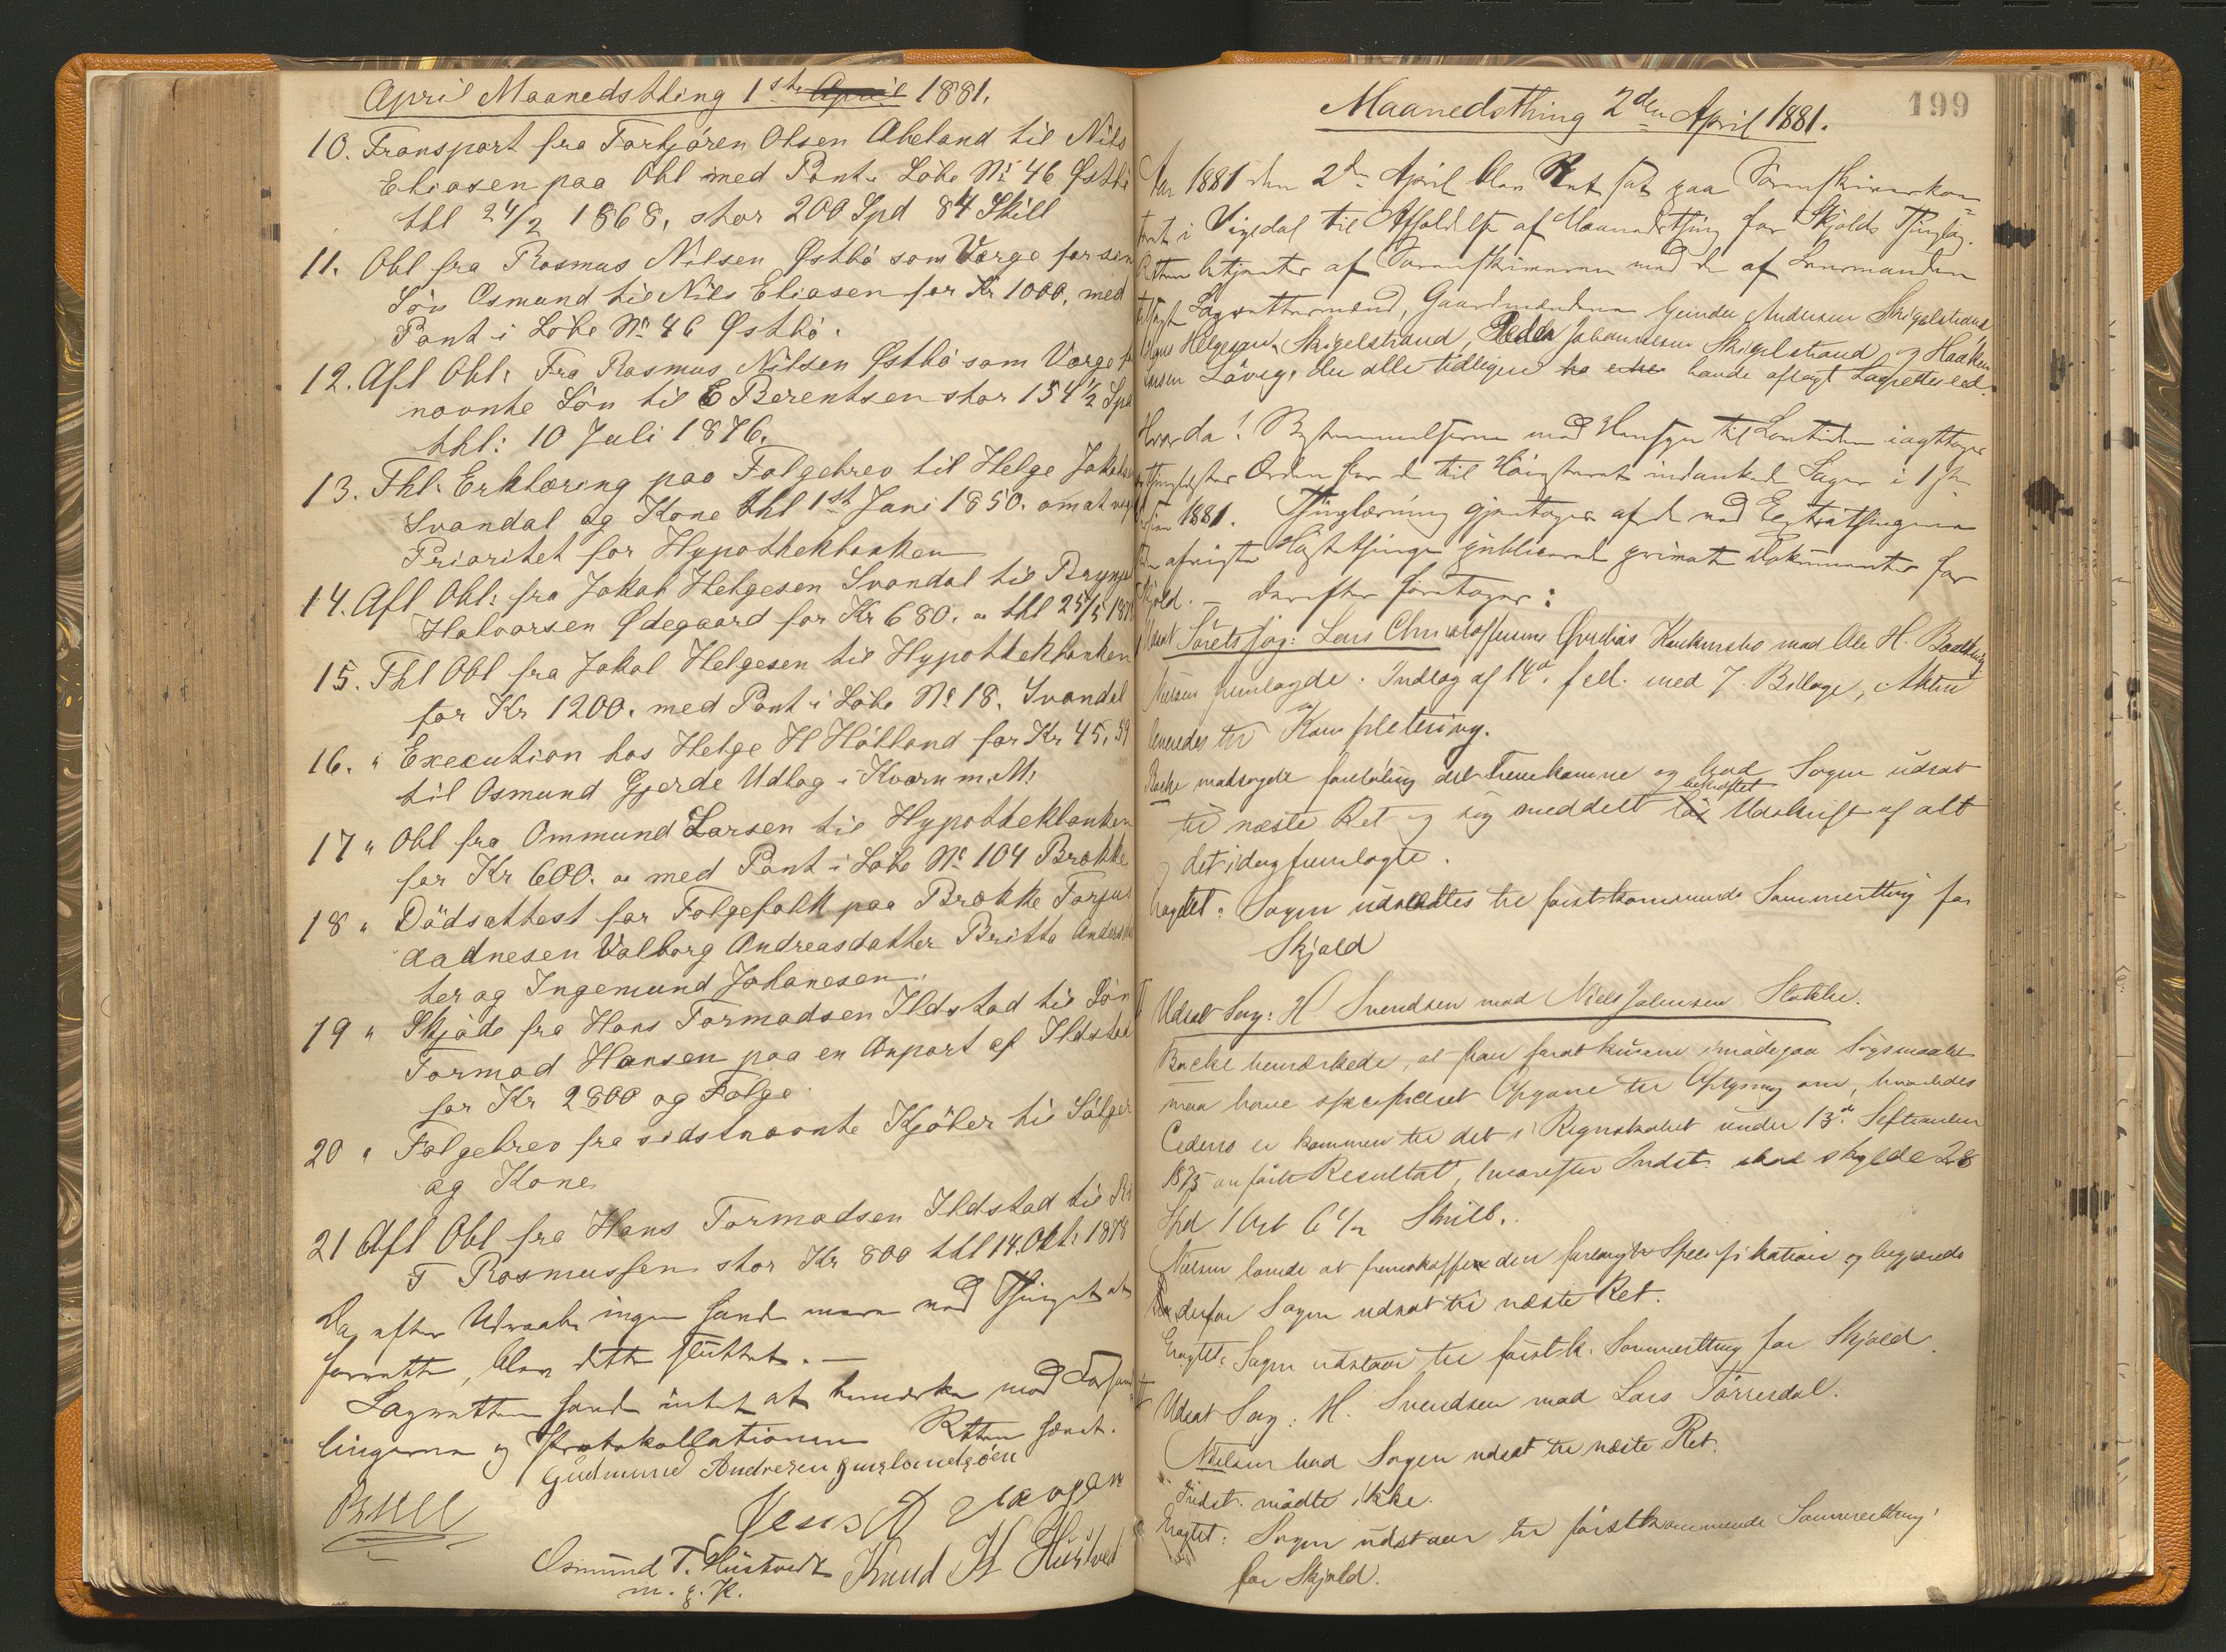 April Maanedsthing 1ste April 1881.
10. Transport fra Torbjören Olsen Abeland til Nils
Eliasen paa Obl med Pant i Löbe No 46 Østbö
thl 24/2 1868, stor 200 Spd 84 Skill
11. Obl fra Rasmus Nilsen Østbö som Værge for sin
Sön Osmund til Nils Eliasen for Kr 1000, med
Pant i Löbe No 46 Østbö.
12. Afl Obl: Fra Rasmus Nilsen Østbö som Værge f
nævnte Sön til E Berentsen stor 154 1/2 Spd
thl: 10 Juli 1876.
13. Thl: Erklæring paa Folgebrev til Helge
Svandal og Kone thl 1st Juni 1850. om at
Prioritet for Hypothekbanken
14. Afl Obl: fra Jakob Helgesen Svandal til
Halvorsen Ødegaard for Kr 680. " thl 25/5
15. Thl Obl fra Jakob Helgesen til Hypothekbanken
for Kr 1200. med Pant i Löbe No 18. Svandal
16. " Execution hos Helge H Hölland for Kr 45,59
til Osmund Gjerde Udlæg i Kværn m. M:
17 " Obl fra Ommund Larsen til Hypothekbanken
for Kr 600. " med Pant i Löbe No 104 Brække
18 " Dödsattest for Folgefolk paa Brække
Aadnesen Valborg Andreasdatter Britta Anders
ter og Ingemund Johanesen.
19 " Skjöde fra Hans Tormodsen Ildstad til Sön
Tormod Hansen paa en Anpart af Ildstad
for Kr 2800 og Folge
20 " Folgebrev fra sidstnævnte Kjöber til Sölger
og Kone
21 Afl Obl fra Hans Tormodsen Ildstad til
T Rasmussen stor Kr 800 thl 14. Okt: 1878
Da efter Udraab ingen fandt mere ved Thinget at
forrette, blev dette sluttet. —
Lagretten fandt intet at bemærke mod
lingerne og Protokollationen Retten hævet.
Gudmund Andresen
Osmund T. Hustvedt Knud K Hustvedt
m. f. P.
199
Maanedsthing 2den April 1881.
Aar 1881 den 2den April blev Ret sat paa Sorenskriverkon=
toret i Vigedal til Afholdelse af Maanedsthing for Skjolds Thinglag.
Retten betjentes af Sorenskriveren med de af Lensmanden
Lagrettemænd, Gaardmændene Andersen Skigelstrand
Helgesen Skigelstrand, Peder Johannesen Skigelstrand og Haaken
Løvig, der alle tidligere havde aflagt Lagretteed.
Hvorda! Bestemmelserne med Hensyn til iagttages
Orden for de til Höiesteret indankede Sager i 1ste
1881. Thinglæsning gjentages af de ved Extrathingene
afvigte Høstthinge publicerede private Dokumenter for
Skjold. — derefter foretoges:
Lars Christoffersens Konkursbo mod Ole H.
Nielsen fremlagde: Indlæg af feb. med 7 Bilage, Akten
leveredes til Kompletering.
Bache modsagde foreløbig det Fremkomne og bad Sagen udsat
til næste Ret og sig meddelt bekræftet Udskrift af alt
det idag fremlagte.
Eragtet: Sagen udsættes til førstkommende Sommerthing for
Skjold
Udsat Sag: H Svendsen mod Niels Stokke.
Bache bemærkede, at han forat kunne imødegaa Søgsmaalet
maa have specificeret Opgave til Oplysning om, hvorledes
er kommen til det i Regnskabet under 13de September
1875 anførte Resultat, hvorefter Indst. skal skylde 28
Spd 1 Ort 6 1/2 Skill.
Nielsen lovede at fremskaffe den forlangte Specifikation og begjærede
derfor Sagen udsat til næste Ret.
Eragtet: Sagen udstaar til førstk. Sommerthing for Skjold.
Udsat Sag: H. Svendsen mod Lars Tørresdal.
Nielsen bad Sagen udsat til næste Ret.
Indst. mødte ikke.
Eragtet: Sagen udstaar til førstkommende Sommerthing
for Skjold.